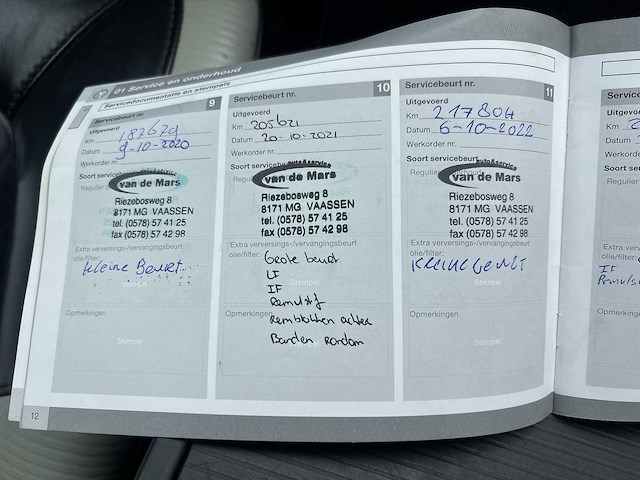 01 Service en onderhoud
Servicedocumentatie en stempels
Servicebeurt nr. 9
Uitgevoerd
Km 187629
Datum 9-10-2020
Werkorder nr.
Soort servicebeurt
Regulier
auto&service
van de Mars
Riezebosweg 8
8171 MG VAASSEN
tel. (0578) 57 41 25
fax (0578) 57 42 98
Extra verversings-/vervangingsbeurt
olie/filter:
kleine Beurt
Stempel
Opmerkingen
Stempel
12
Servicebeurt nr. 10
Uitgevoerd
Km 205621
Datum 20-10-2021
Werkorder nr.
Soort servicebeurt
Regulier
auto&service
van de Mars
Riezebosweg 8
8171 MG VAASSEN
tel. (0578) 57 41 25
fax (0578) 57 42 98
Extra verversings-/vervangingsbeurt
olie/filter:
Grote beurt
LF
IF
Remvlstf
Stempel
Opmerkingen
Remblokken achter
Banden Rondom
Servicebeurt nr. 11
Uitgevoerd
Km 217804
Datum 6-10-2022
Werkorder nr.
Soort servicebeurt
Regulier
auto&service
van de Mars
Riezebosweg 8
8171 MG VAASSEN
tel. (0578) 57 41 25
fax (0578) 57 42 98
Extra verversings-/vervangingsbeurt
olie/filter:
KLEINE BEURT
Stempel
Opmerkingen
Stempel
Km
Datum
IF